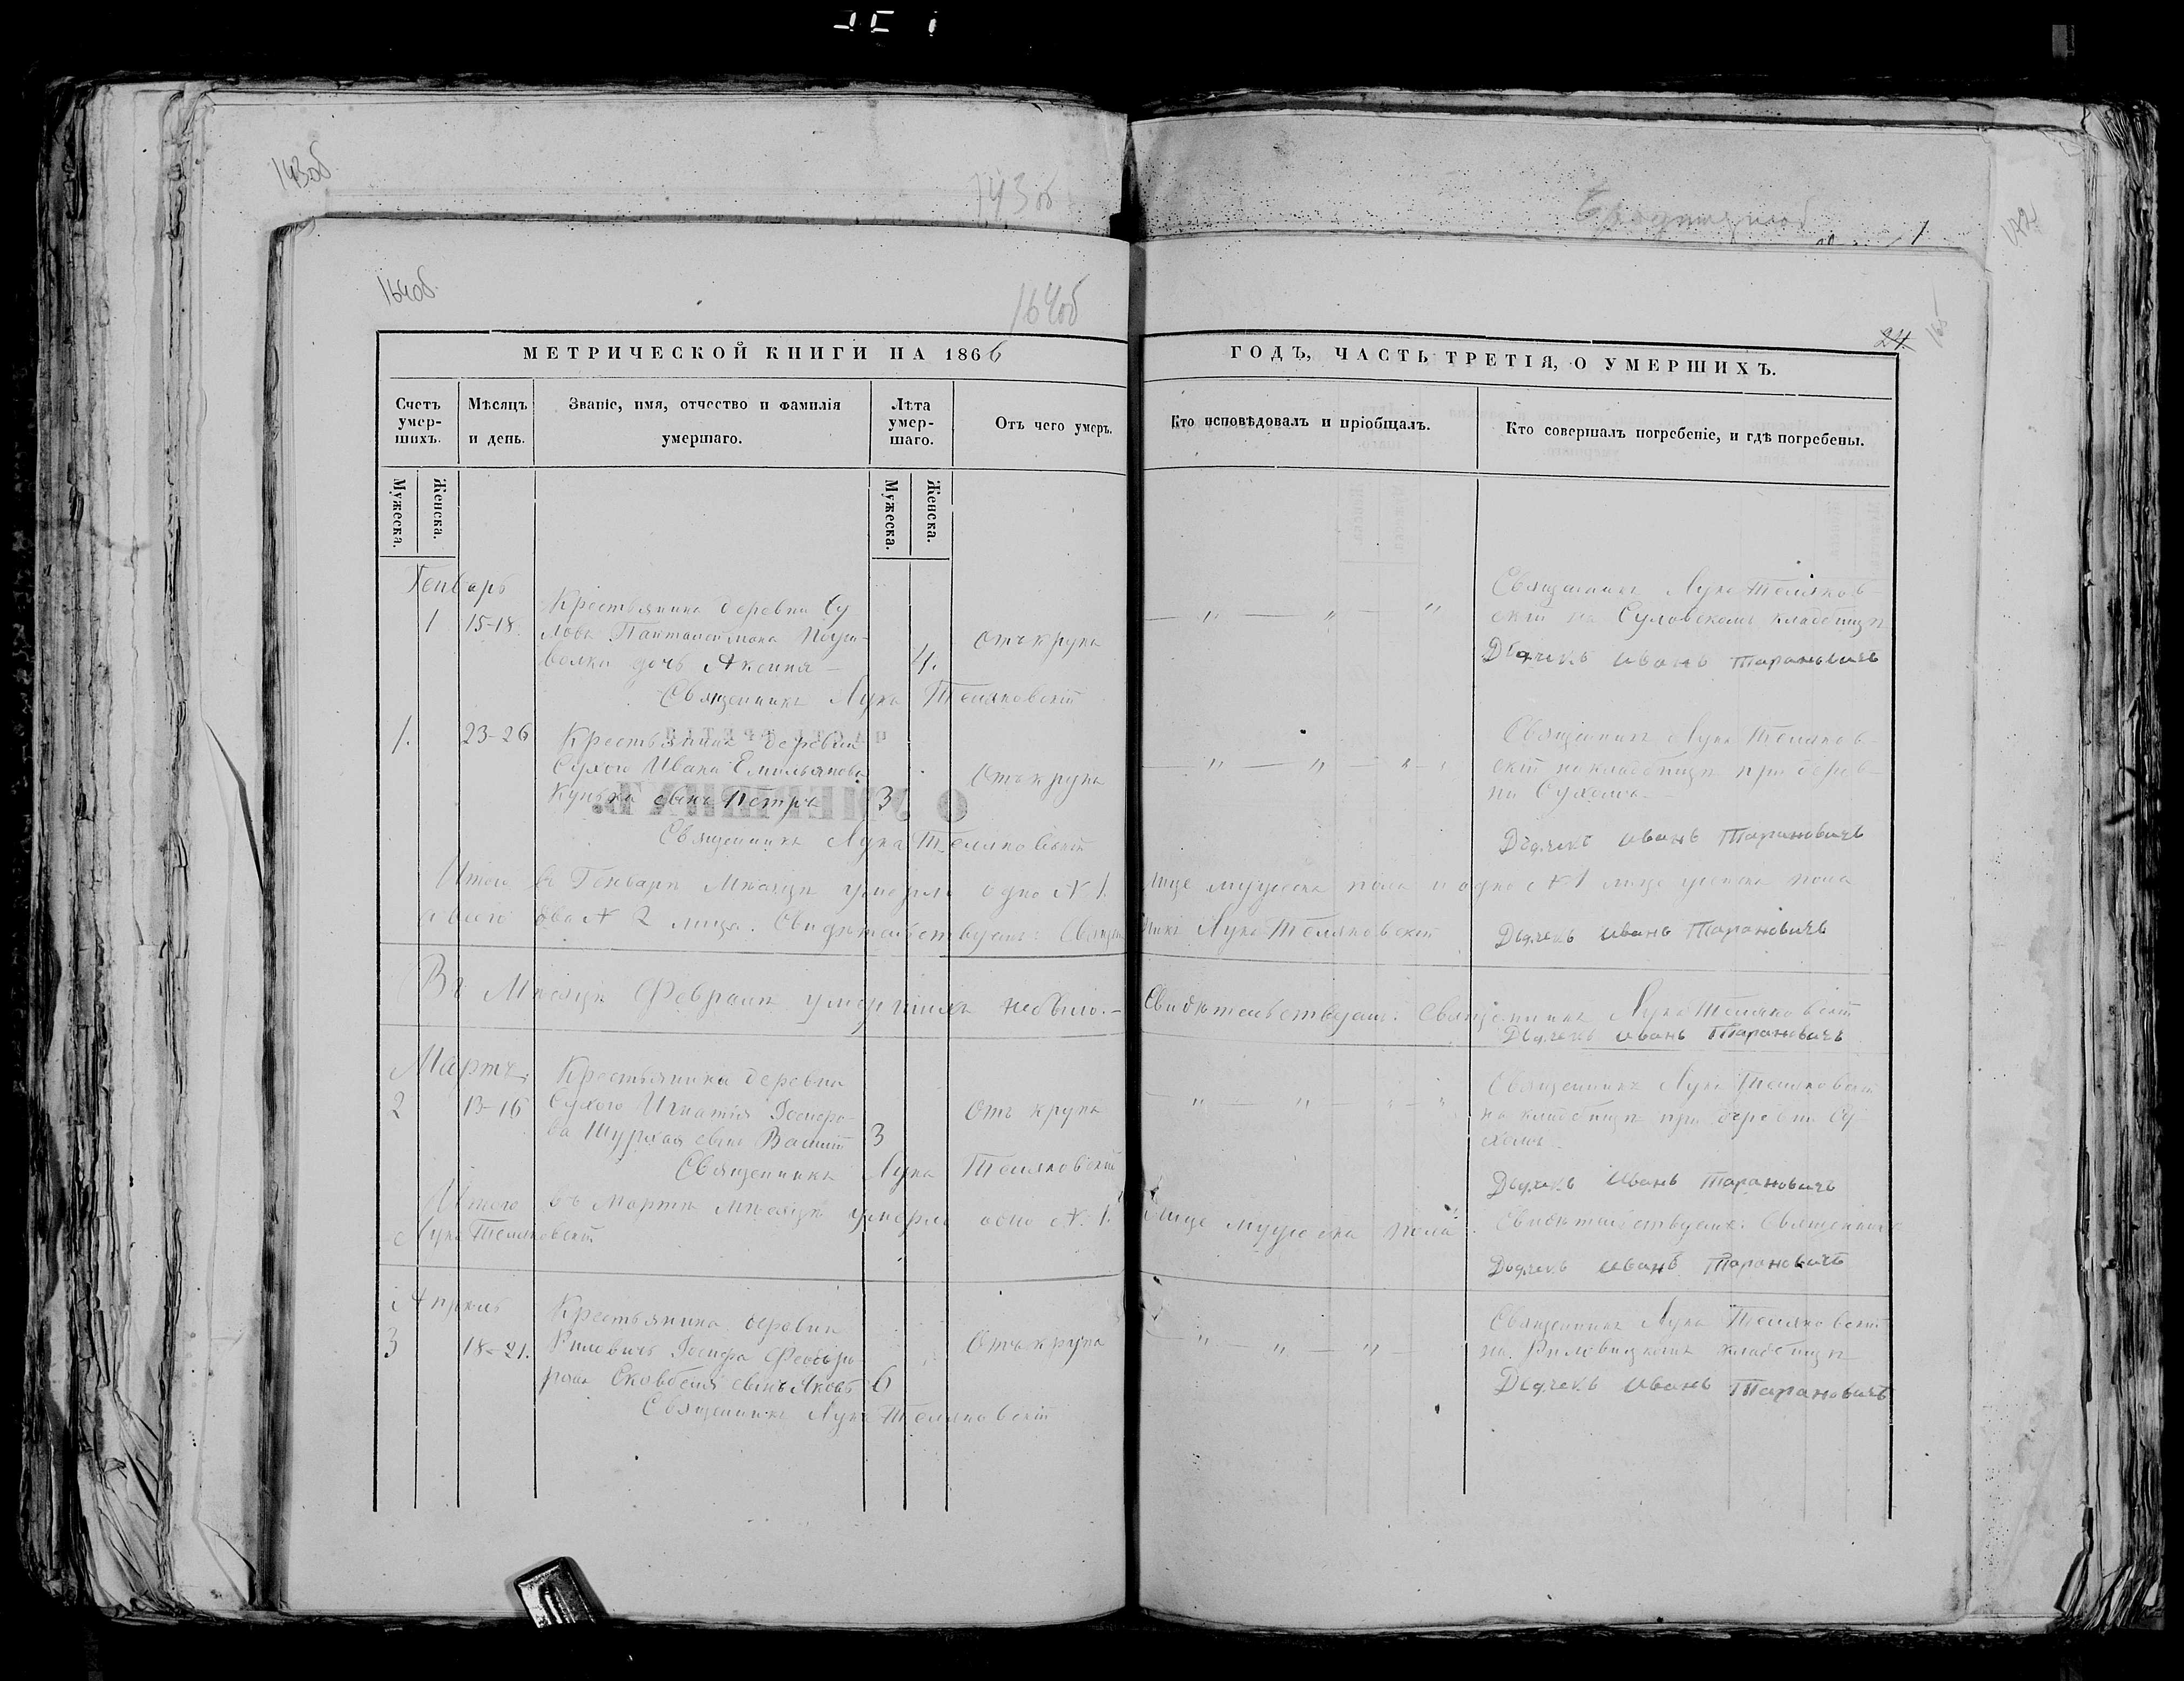 143об
143об
1
164об
164об
24.
165
МЕТРИЧЕСКОЙ КНИГИ НА 1866
ГОДЪ, ЧАСТЬ ТРЕТІЯ, О УМЕРШИХЪ.
Счетъ умер-шихъ.
Мѣсяцъ и день.
Званіе, имя, отчество и фамилія умершаго.
Лѣта умер-шаго.
Отъ чего умеръ.
Кто исповѣдовалъ и пріобщалъ.
Кто совершалъ погребеніе, и гдѣ погребены.
Мужеска.
Женска.
Мужеска.
Женска.
Генварь
1 15-18.
Крестьянина деревни Су
лова Пантелеймона
дочь Аксиния
4.
Отъ крупа
Священникъ Лука Теляков-
скій на Суловскомъ кладбищѣ
Дьячекъ Иванъ Тарановичъ
Священникъ Лука Теляковскій
1. 23-26
Крестьянина деревни
Сухого Ивана Емильянова
сынъ Петръ
3
Отъ крупа
Священникъ Лука Теляков-
скій на кладбищѣ при дерев-
ни Сухомъ.
Дьячекъ Иванъ Тарановичъ
Священникъ Лука Теляковскій
Итого въ Генварѣ Мѣсяцѣ умерло одно N. 1. лице мужеска пола и одно N. 1 лице женска пола
а всего два N 2 лица. Свидѣтельствуемъ: Священникъ Лука Теляковскій
Дьячекъ Иванъ Тарановичъ
Въ Мѣсяцѣ Февралѣ умершихъ небыло. - Свидѣтельствуемъ: Священникъ Лука Теляковскій
Дьячекъ Иванъ Тарановичъ
Мартъ.
2 13-16
Крестьянина деревни
Сухого Игнатія Іосифо-
ва сынъ Василій
3
Отъ крупа
Священникъ Лука Теляковскій
на кладбищѣ при деревни Су-
хомъ
Дьячекъ Иванъ Тарановичъ
Священникъ Лука Теляковскій
Итого въ Мартѣ Мѣсяцѣ умерло одно N. 1. лице мужеска пола. Свидѣтельствуемъ: Священникъ
Лука Теляковскій
Дьячекъ Иванъ Тарановичъ
Апрѣль
3 18-21.
Крестьянина деревни
Іосифа
сынъ Яковъ
6
Отъ крупа
Священникъ Лука Теляковскій
на кладбищѣ
Дьячекъ Иванъ Тарановичъ
Священникъ Лука Теляковскій